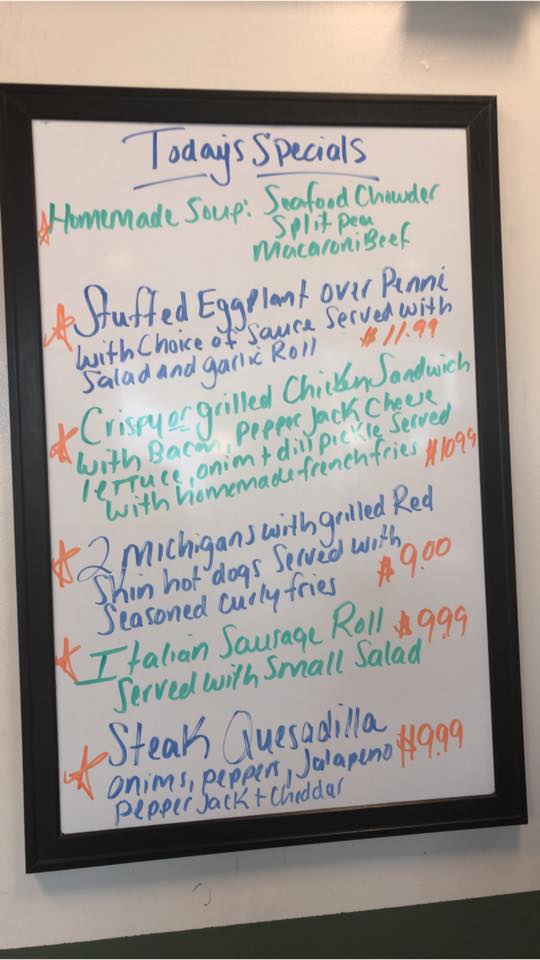 Today's Specials
Homemade Soup: Seafood Chowder
Split Pea
Macaroni Beef
Stuffed Eggplant over Penne
with Choice of Sauce Served with
Salad and garlic Roll $11.99
Crispy or grilled Chicken Sandwich
with Bacon, pepper Jack Cheese
lettuce, onion + dill pickle Served
with homemade french fries $10.99
2 Michigans with grilled Red
Skin hot dogs Served with
Seasoned Curly fries $9.00
Italian Sausage Roll $9.99
Served with Small Salad
Steak Quesadilla
onions, pepper, Jalapeno $9.99
pepper Jack + Cheddar